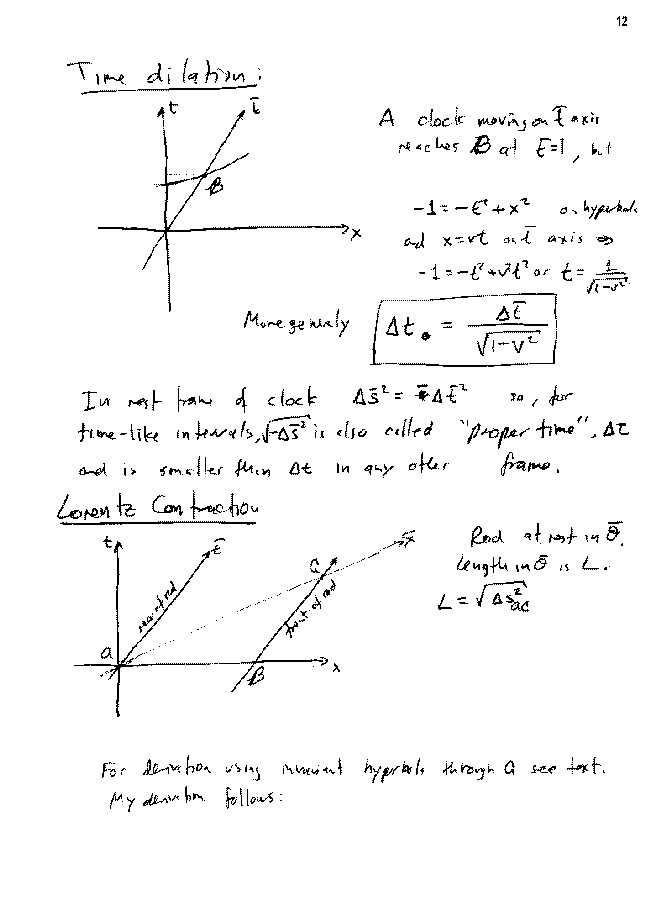 12
Time dilation:
t t̄
B
x
A clock moving on t̄ axis
reaches B at t̄=1, but
-1 = -t² + x² on hyperbola
and x=vt on t̄ axis ⇒
-1 = -t² + v²t² or t = 1/√(1-v²)
More generally Δt = Δt̄/√(1-v²)
In rest frame of clock Δs̄² = -Δt̄² so, for
time-like intervals, √-Δs² is also called "proper time", Δτ
and is smaller than Δt in any other frame.
Lorentz Contraction
t t̄ x̄
rear of rod
front of rod
a B C
x
Rod at rest in Ō.
Length in Ō is L.
L = √Δs²ac
For derivation using invariant hyperbola through C see text.
My derivation follows: